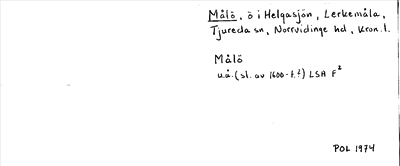 Målö, ö i Helgasjön, Lerkemåla,
Tjureda sn, Norrvidinge hd, Kron. l.
Målö
u.å. (sl. av 1600-t.?) LSA F²
POL 1974